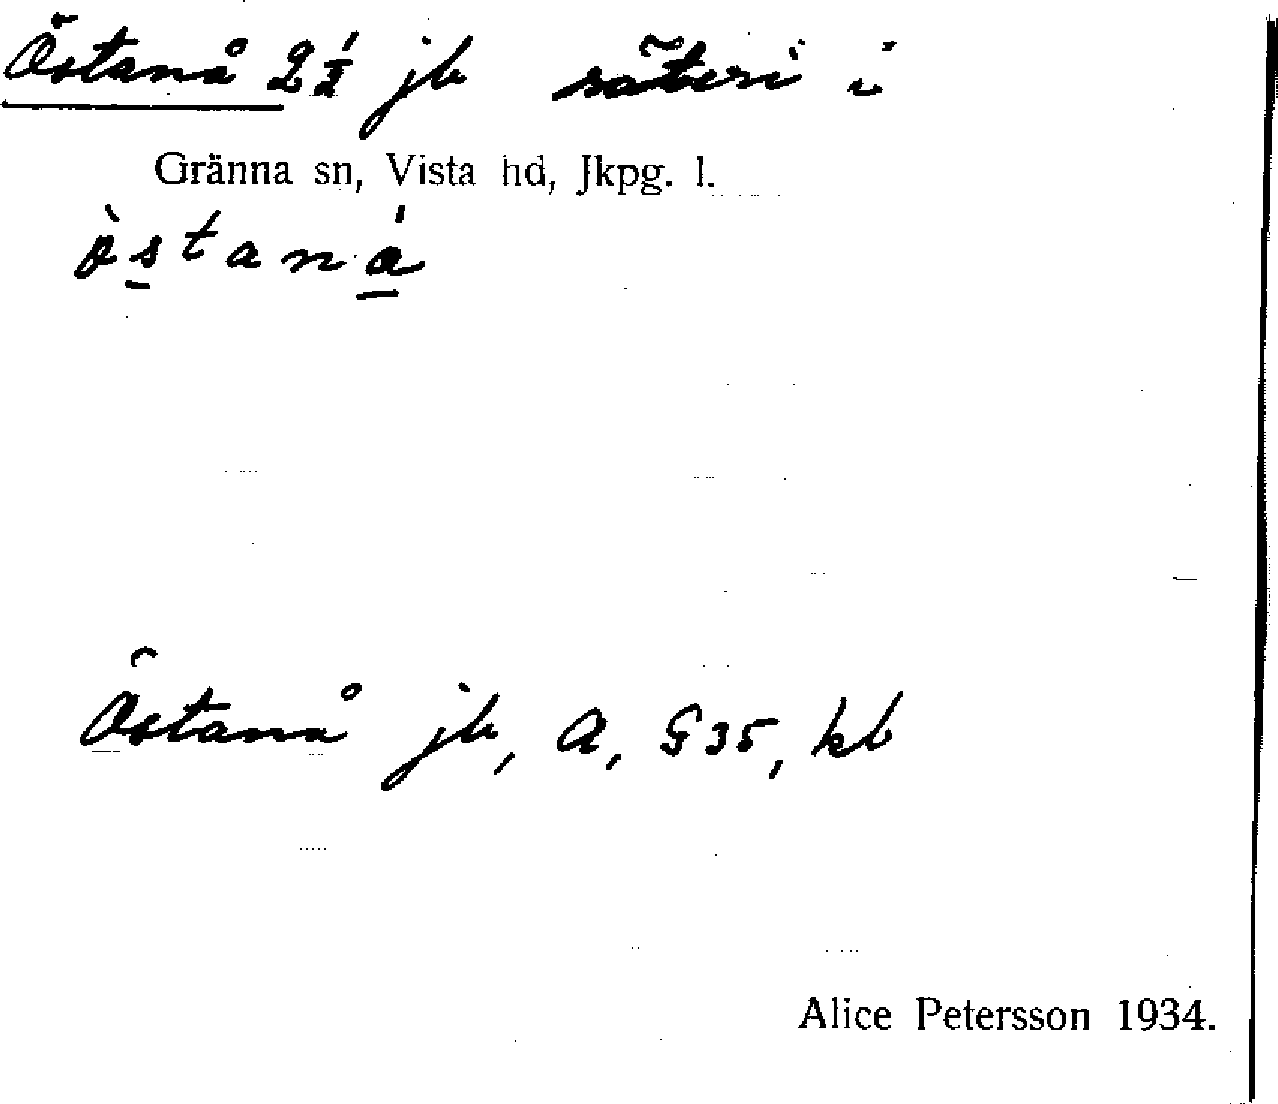 Östanå 2 1/2 jb säteri i
Gränna sn, Vista hd, Jkpg. l.
östaná
Östanå jb, A, G35, kb
Alice Petersson 1934.